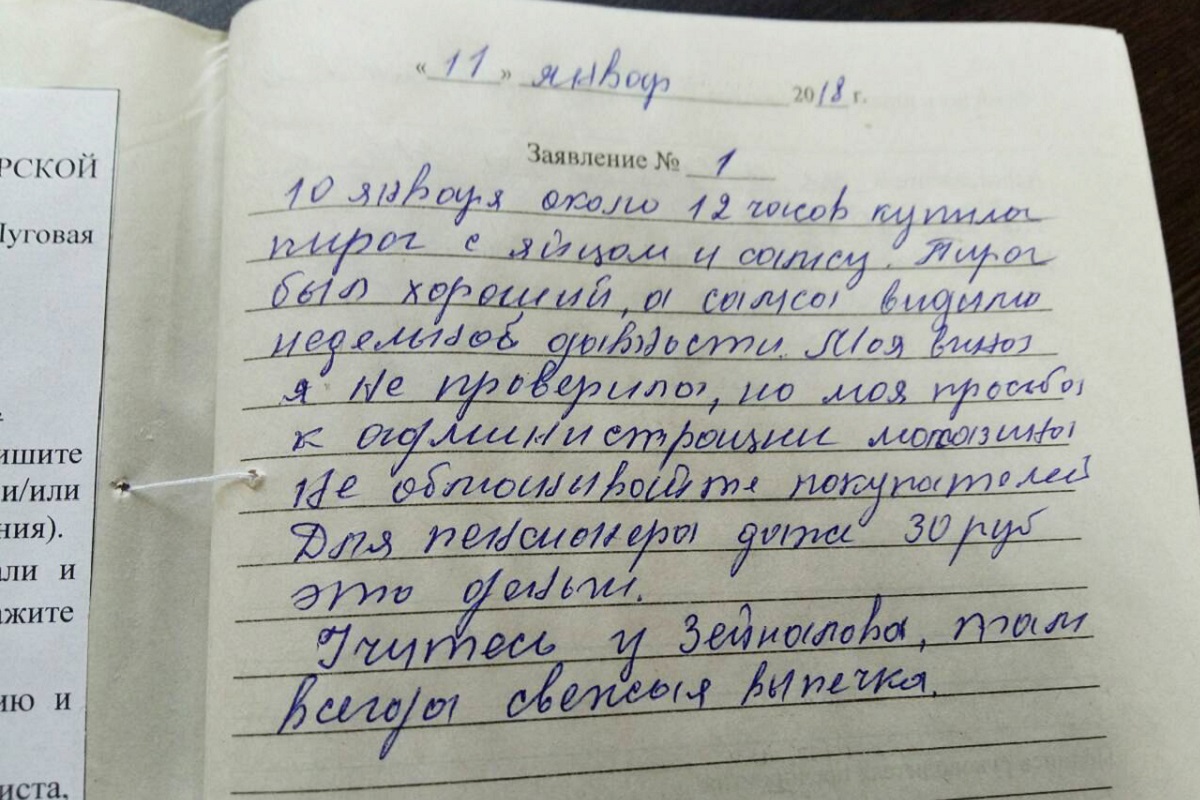 РСКОЙ
Луговая
ишите
и/или
ния).
али и
ажите
ию и
иста,
«11» январ 2018 г.
Заявление № 1
10 января около 12 часов купила
пирог с яйцом и самсу. Пирог
был хороший, а самса видимо
недельной давности. Моя вина
я не проверила, но моя просьба
к администрации магазина
Не обманывайте покупателей
Для пенсионера даже 30 руб
это деньги.
Учитесь у Зейналова, там
всегда свежая выпечка.